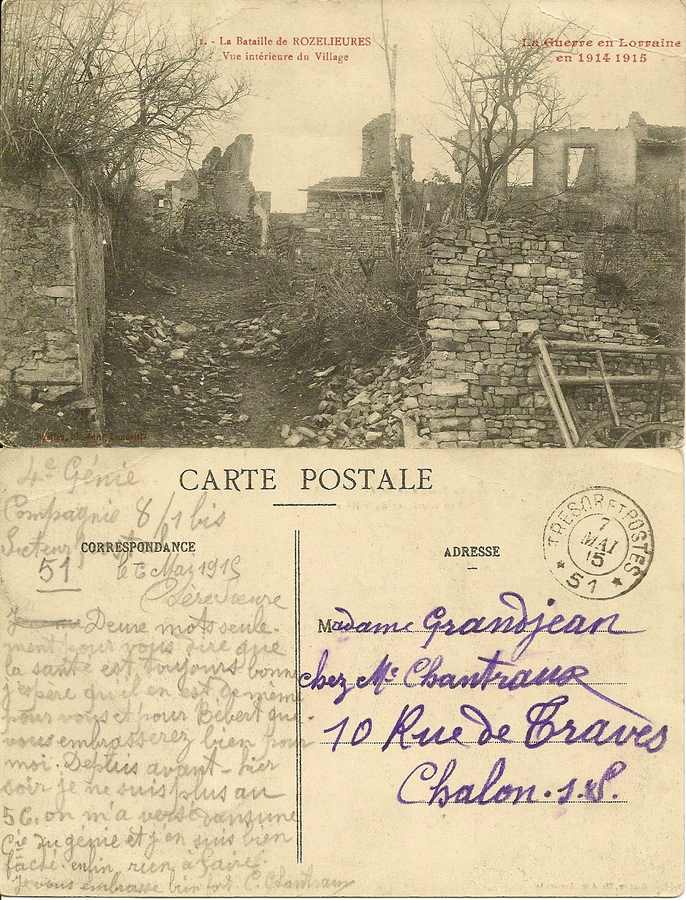 1. - La Bataille de ROZELIEURES
Vue intérieure du Village
La Guerre en Lorraine
en 1914 1915
CARTE POSTALE
4e Génie
Compagnie 8/1 bis
Secteur
51
CORRESPONDANCE
ADRESSE
TRESOR ET POSTES
7
MAI
15
* 51 *
le 6 Mai 1915
Chère soeure
Deux mots seule-
ment pour vous dire que
la santé est toujours bonne
j'espère qu'il en est de même
pour vous et pour Bébert que
vous embrasserez bien pour
moi. Deplus avant-hier
soir je ne suis plus au
5 C. on m'a versé dans une
Cie du génie et j'en suis bien
fâché enfin rien à faire.
Je vous embrasse bien fort C. Chantraux
Madame Grandjean
chez Mr Chantraux
10 Rue de Traves
Chalon. s. S.